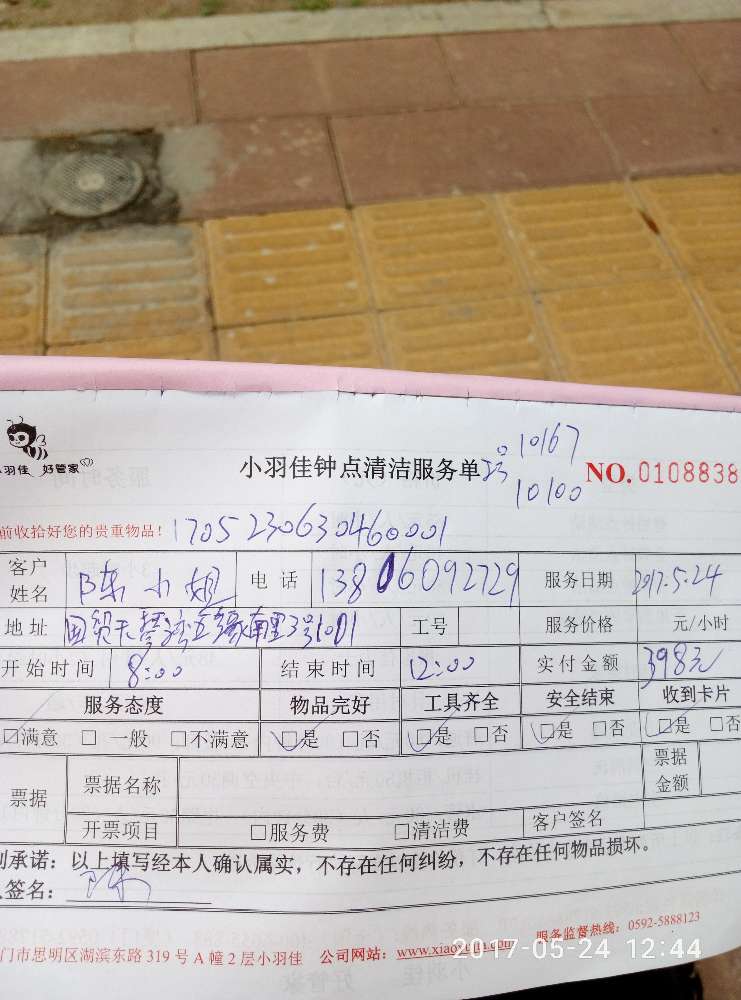 10167
小羽佳 好管家
小羽佳钟点清洁服务单
10100
NO. 0108838
前收拾好您的贵重物品!
1705230630460001
客户姓名 陈小姐 电话 13806092729 服务日期 2017.5.24
地址 国贸天琴湾五缘南里3号1001 工号 服务价格 元/小时
开始时间 8:00 结束时间 12:00 实付金额 398元
服务态度 物品完好 工具齐全 安全结束 收到卡片
☑满意 □一般 □不满意 ☑是 □否 ☑是 □否 ☑是 □否 ☑是 □否
票据 票据名称 票据金额
开票项目 □服务费 □清洁费 客户签名
承诺:以上填写经本人确认属实,不存在任何纠纷,不存在任何物品损坏。
签名: 陈
门市思明区湖滨东路 319 号 A 幢 2 层小羽佳 公司网站: 服务监督热线: 0592-5888123
2017-05-24 12:44